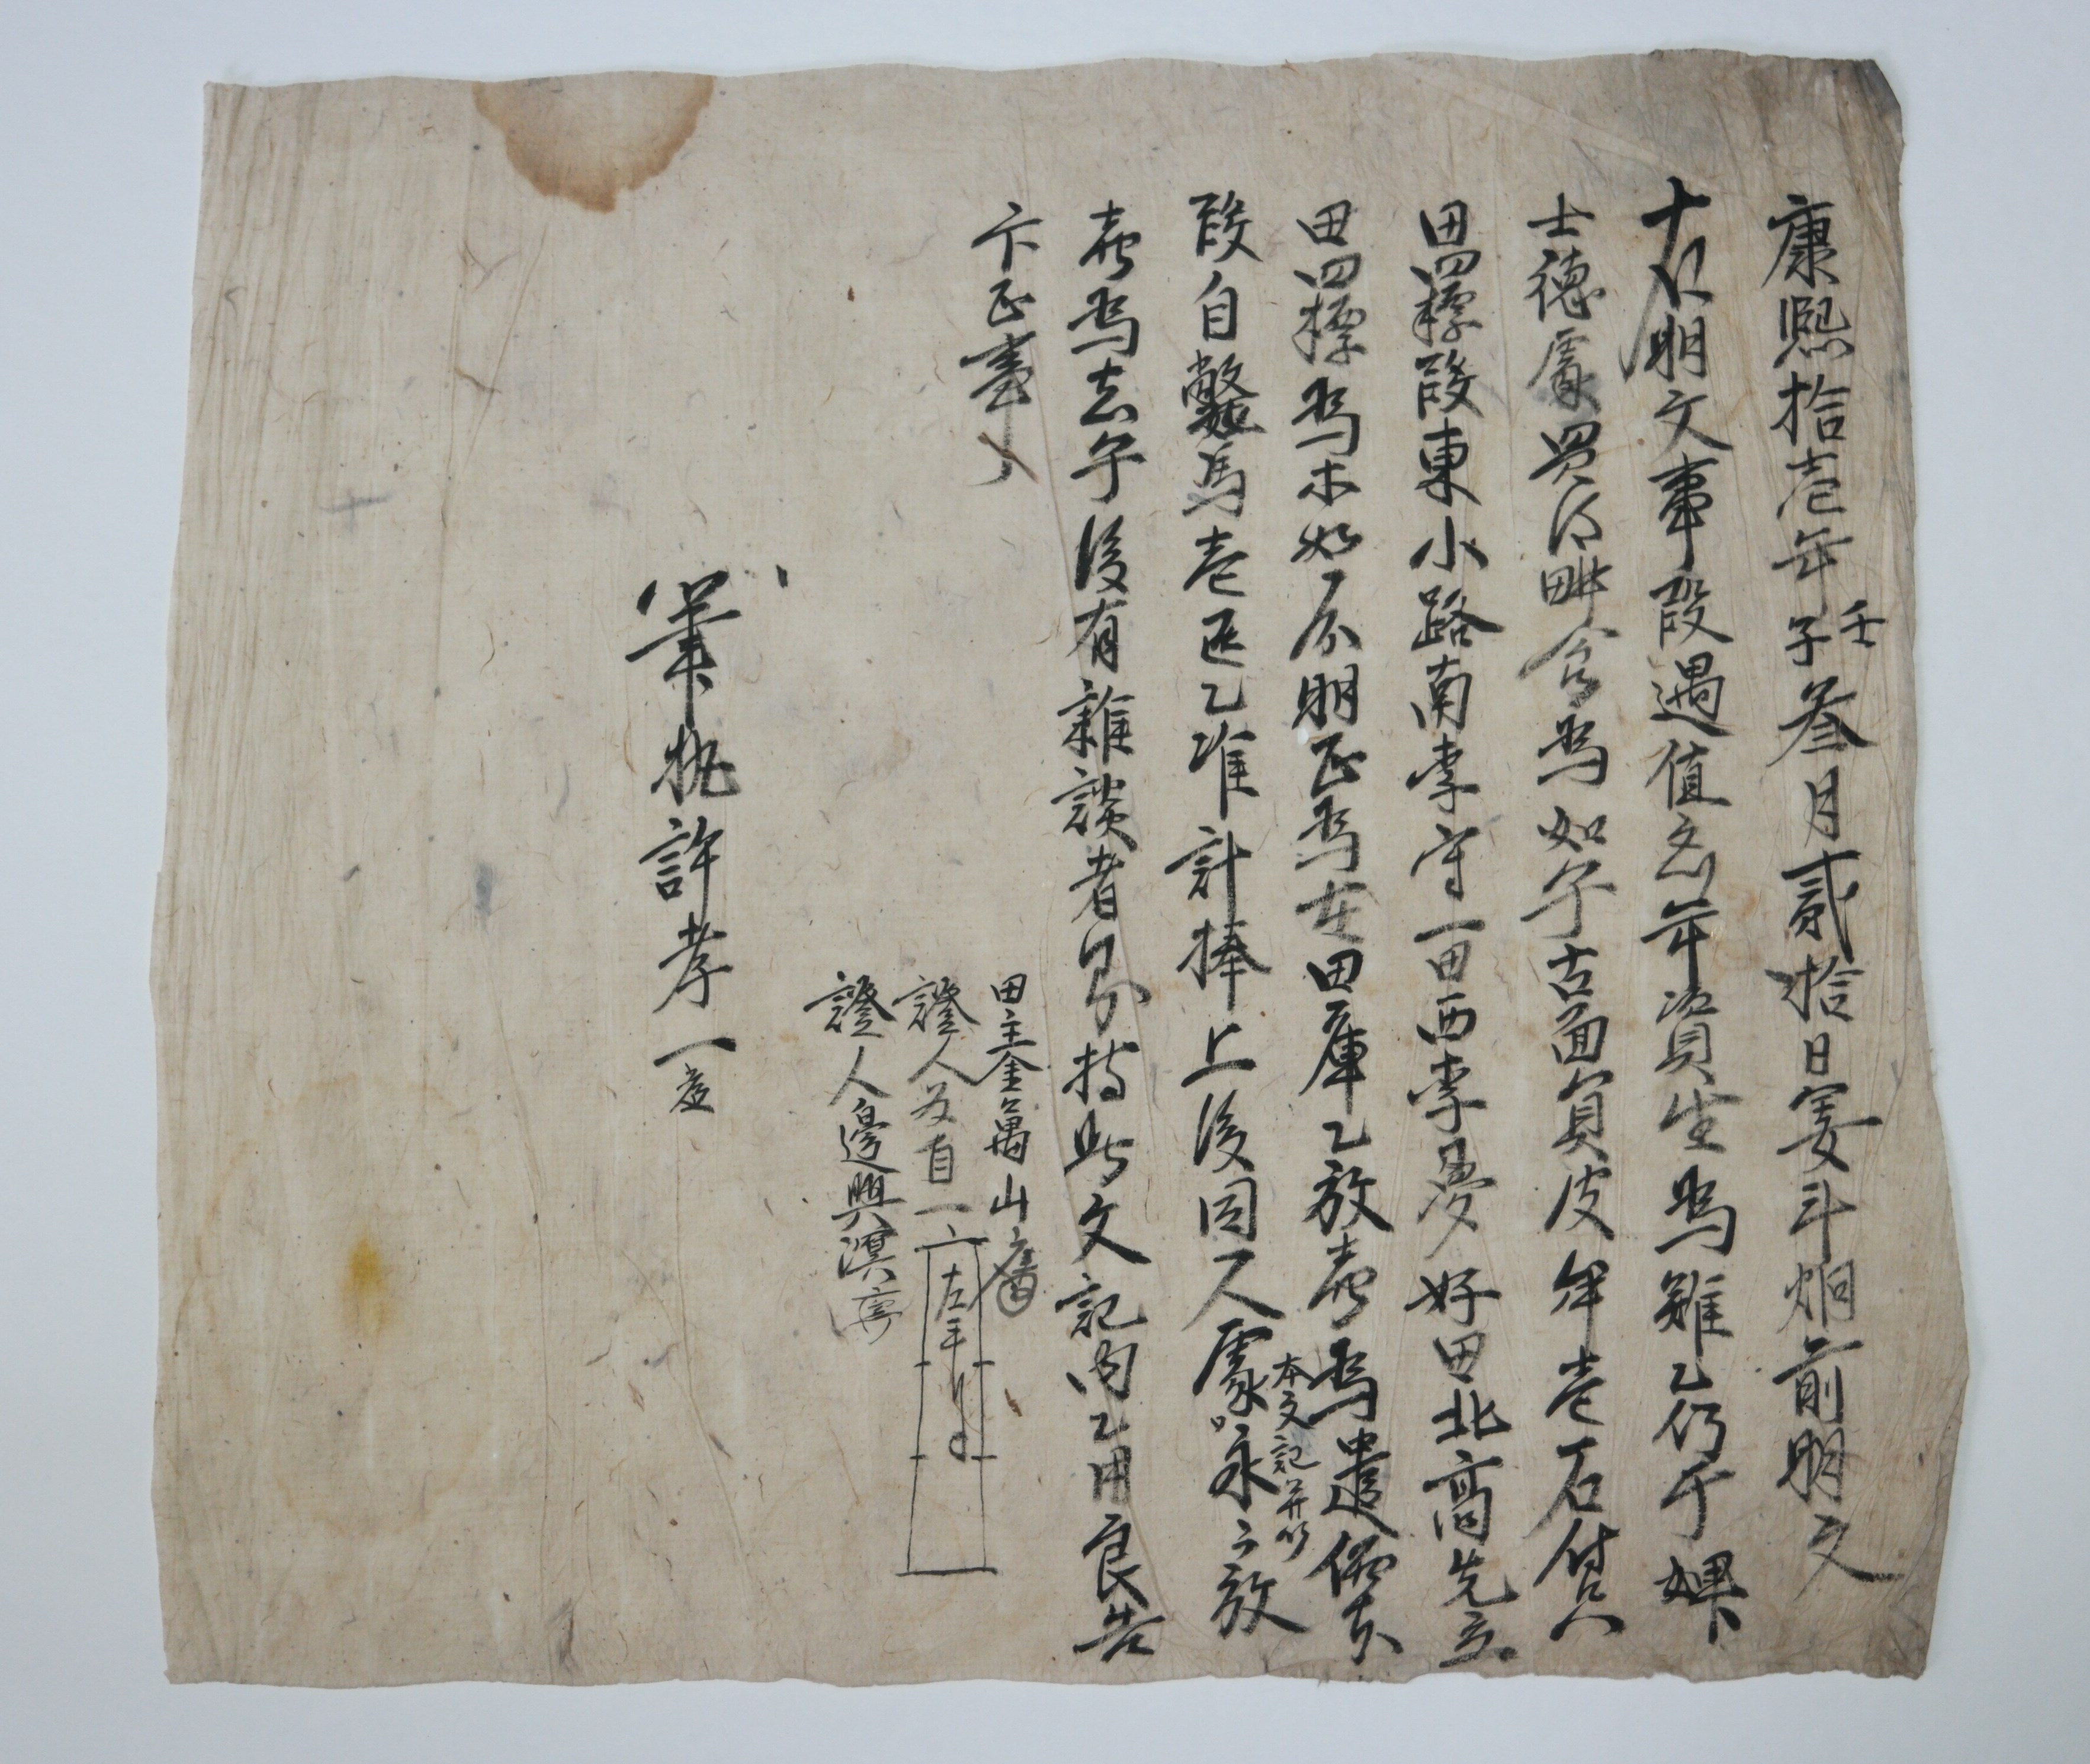 康熙拾壱年壬子叄月貳拾日姜斗炯前明文
右明文事段遇値㐫年資生爲難乙仍于婢
士德處買得畊食爲如乎古面員皮牟壱石付只
田四標段東小路南李守一田西李夢好田北高先立
田四標爲木如一分明正爲在田庫乙放賣爲遣價本
段自 馬壱匹乙准計捧上後同人處本文記并以永永放
賣爲去乎後有雜談者是分持此文記內乙用良告
卞正事
田主金萬山
證人 自一左手
證人邊興溟
筆執許孝一